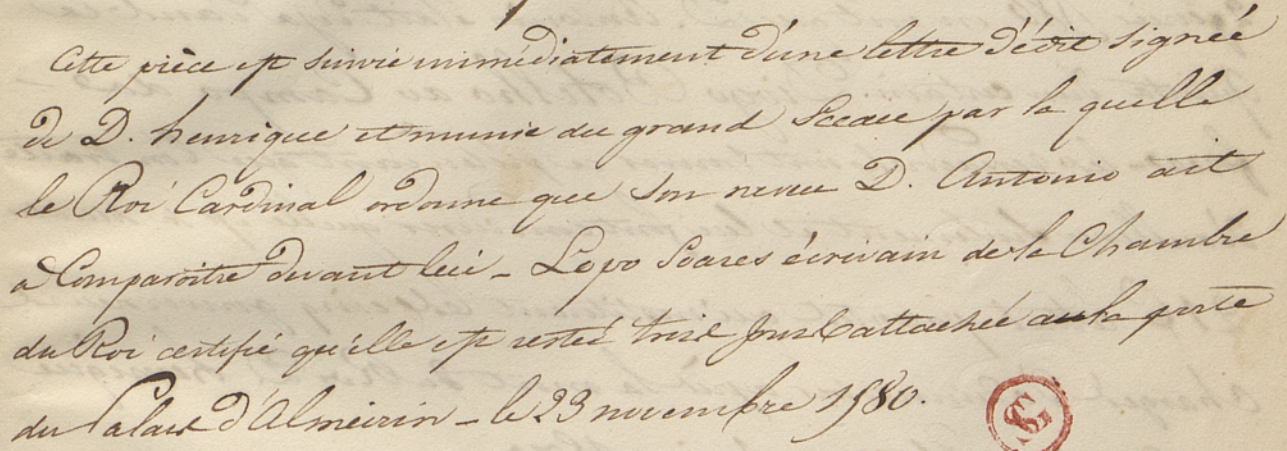 Cette pièce est suivie immédiatement d'une lettre d'édit signée
de D. henrique et munie du grand Sceau par la quelle
le Roi Cardinal ordonne que son neveu D. Antonio ait
a Comparoitre devant lui - Lopo Soares écrivain de la Chambre
du Roi certifie qu'elle est restée trois Jours attachée a la porte
du Palais d'Almeirin - le 23 novembre 1580.
SG